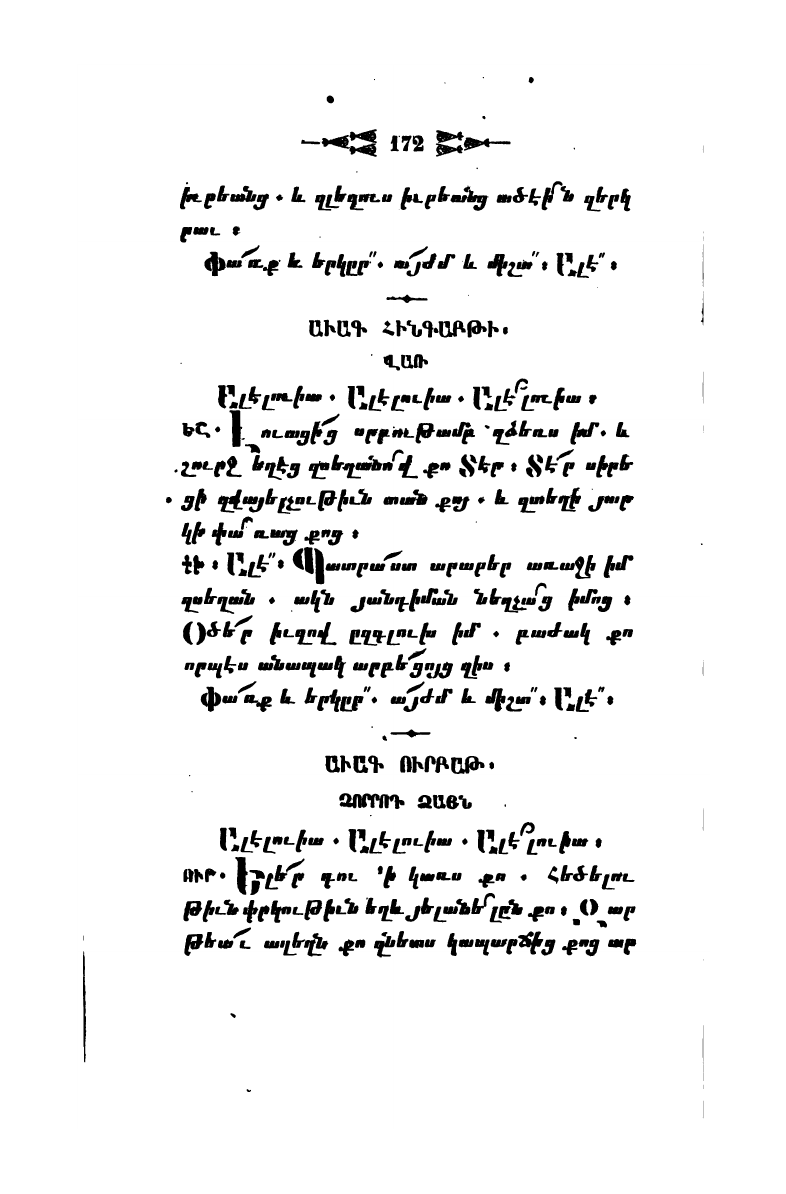 172
խրեանց . և զլեզուս իւրեանց ածէի՛ն զերկ
րաւ ։
Փա՛ռք և երկըր՞. ա՛յժմ և միշտ՞ ։ Ալէ՞ ։
ԱՒԱԳ ՀԻՆԳԱԲԹԻ.
ՎԱՌ
Ալէլուիա . Ալէլուիա . Ալէ՛լուիա ։
ԵՇ. Լուացի՛ց սրբութամբ զձեռս իմ. և
շուրջ եղէց զսեղանո՛վ քո Տէր ։ Տէ՛ր սիրե
ցի զվայելչութիւն տան քոյ . և զտեղի յար
կի փա՛ռաց քոց ։
ԷԻ ։ Ալէ՞ ։ Պատրա՛ստ արարեր առաջի իմ
զսեղան . ակն յանդիման նեղչա՛ց իմոց ։
Օծե՛ր իւղով ըզգլուխ իմ . բաժակ քո
որպէս անապակ արբե՛ցոյց զիս ։
Փա՛ռք և երկըր՞. ա՛յժմ և միշտ՞ ։ Ալէ՞ ։
ԱՒԱԳ ՈՒՐԲԱԹ.
ՉՈՐՐՈԴ ՁԱՅՆ
Ալէլուիա . Ալէլուիա . Ալէ՛լուիա ։
ՈՒՐ. Ելե՛ր դու ՚ի կառս քո . Հեծելու
թիւն փրկութիւն եղև յելանե՛լըն քո ։ Զար
թեա՛ւ աղեղն քո զնետս կապարճից քոց ար